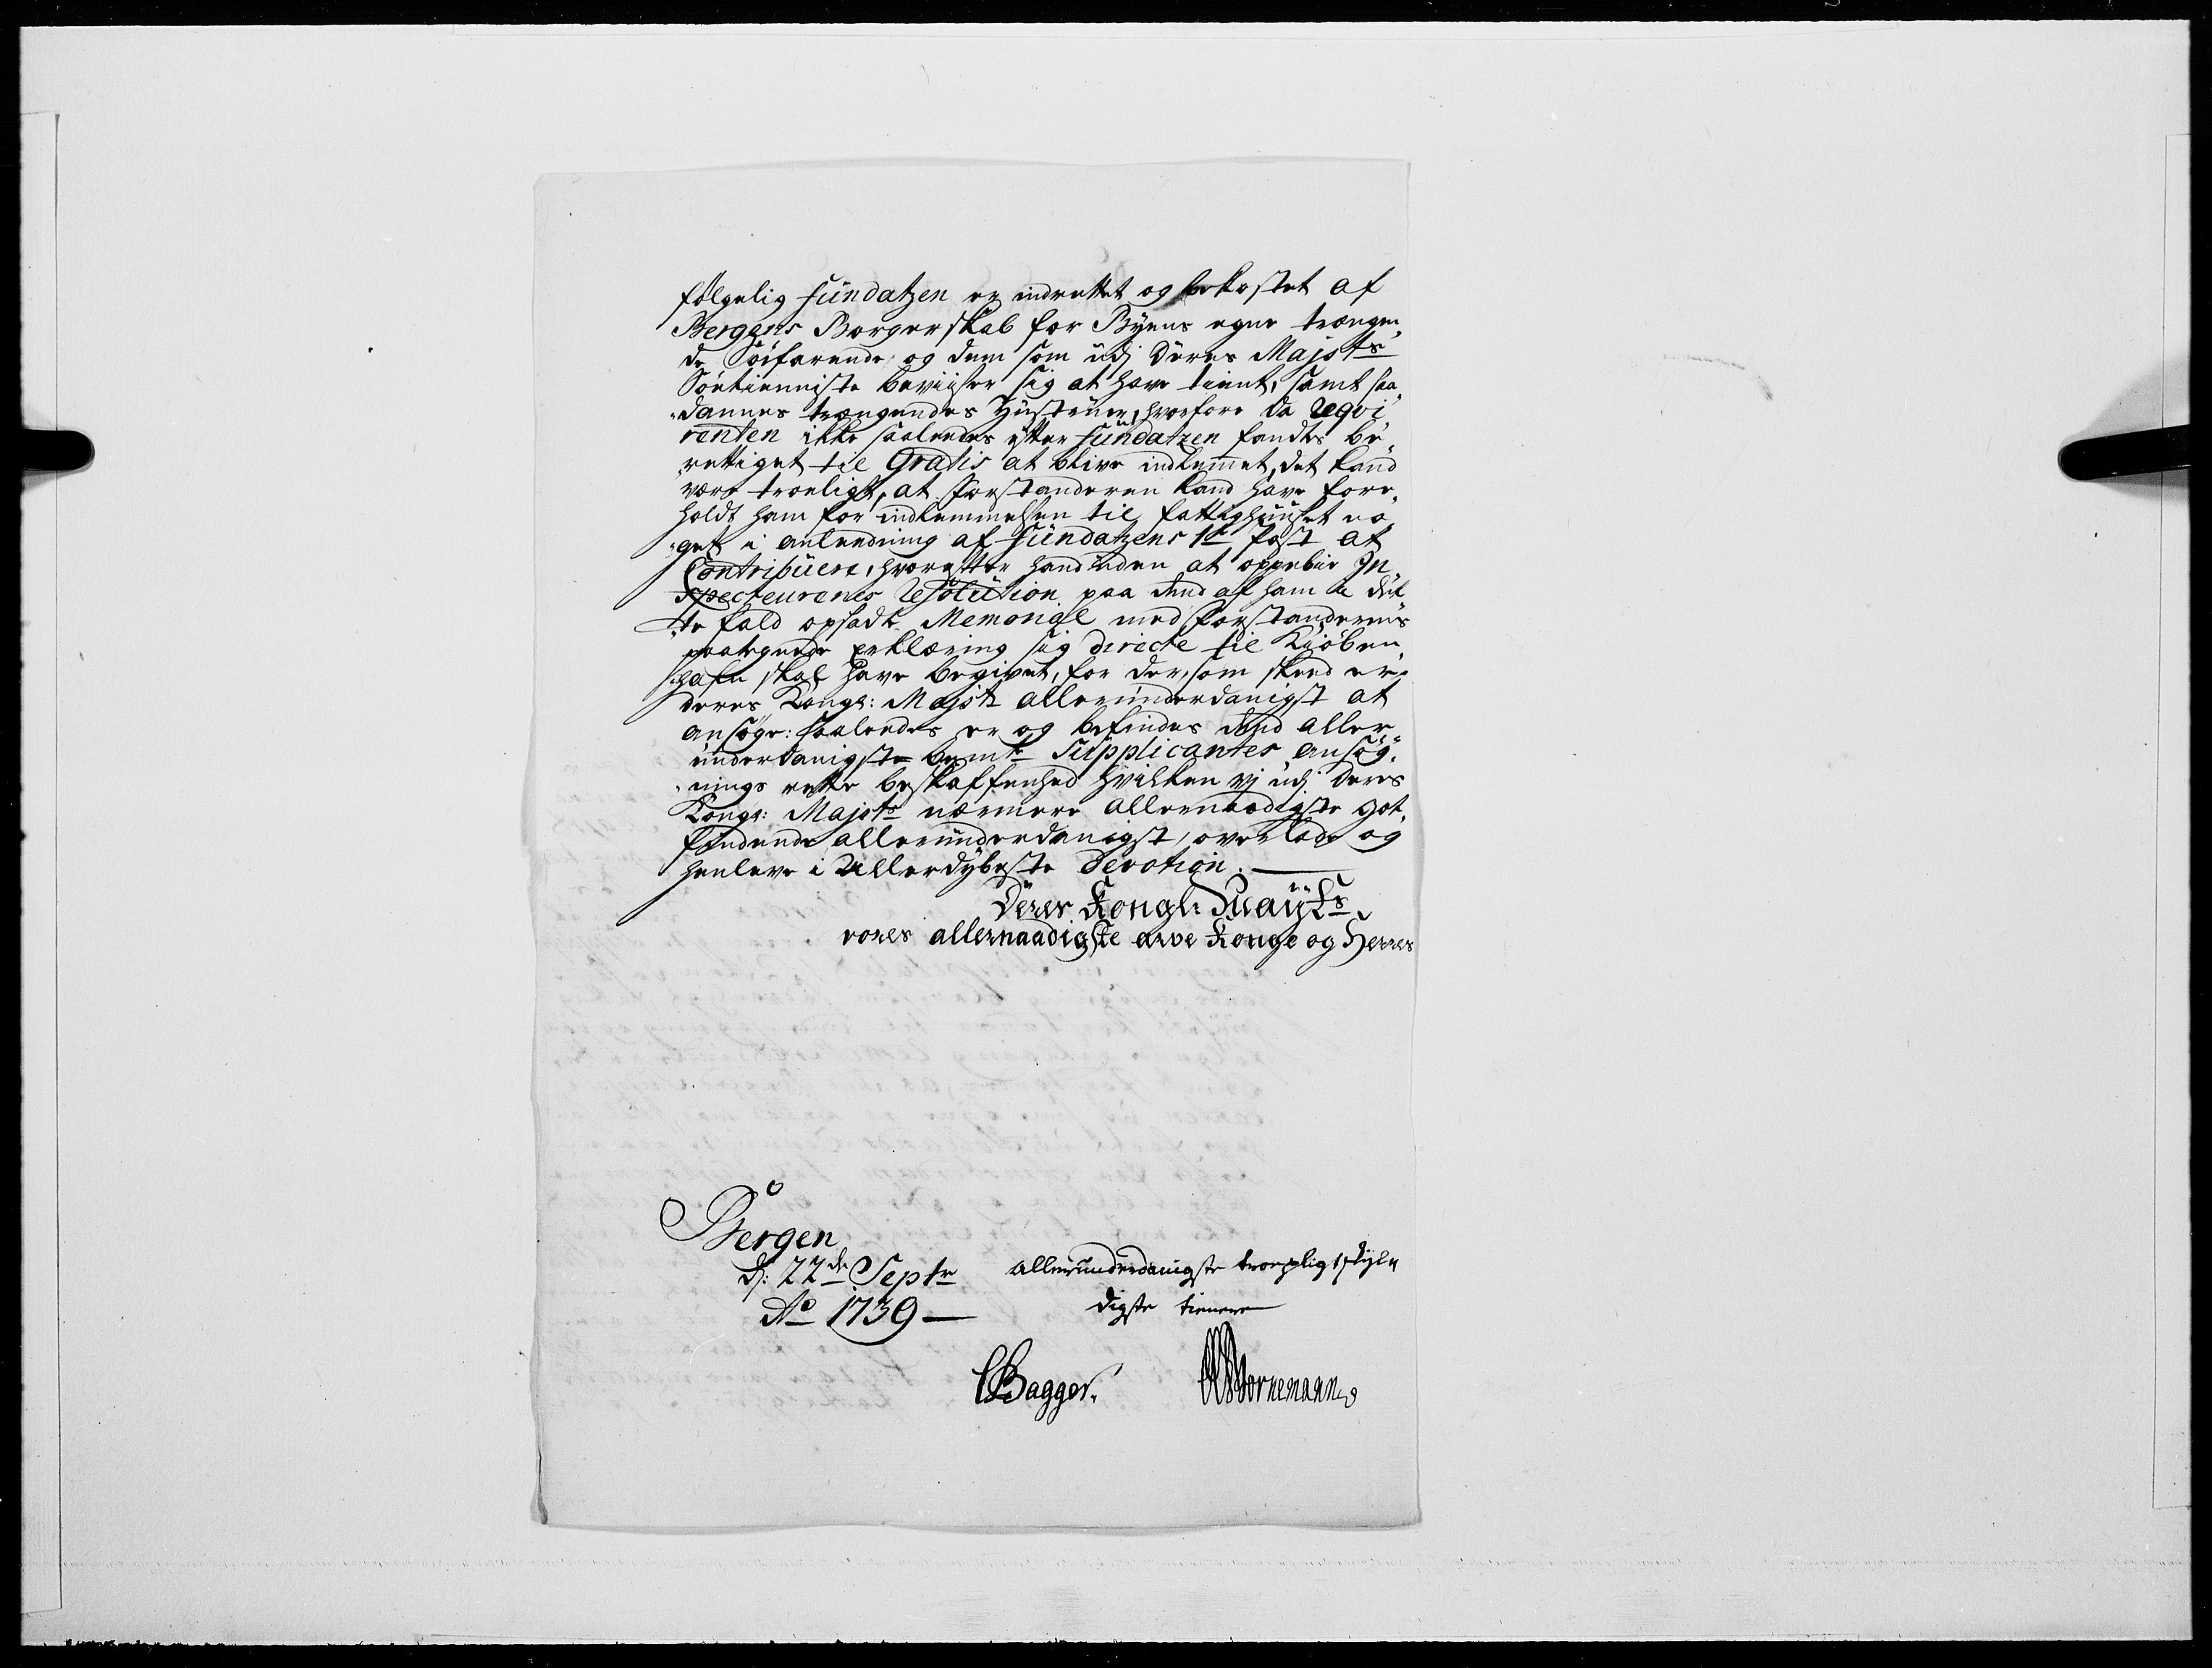 følgelig fundatzen er indrettet og bekostet af
Bergens Borgerskab for Byens egne trængen„
de Söefarende og dem som udj Deres Majsts
Söetienniste beviiser sig at have tient, samt saa„
„dannes trængendes Hustruer, hvorfore da Reqvi„
renten ikke saaledes efter fundatzen fandtes be„
rettiget til Gratis at blive indlemmet, det kand
være troeligt, at Forstanderen kand have fore„
holdt ham for indlemmelsen til fattighuuset no„
„get i anledning af fundatzens 1te Post at
Contribuere, hvorefter hand uden at oppebie In„
specteurenes Resolution paa dend af ham i det„
„te fald opsadte Memorial med Forstanderens
paategnede Erklæring sig directe til Kiöben„
„hafn skal have begivet, for der, som skeed er,
deres Kongl: Majst allerunderdanigst at
ansöge: saaledes er og befindes dend aller„
underdanigste bemte Supplicantes ansög„
„nings rette beskaffenhed hvilken vj udj Deres
Kongl: Majsts nærmere allernaadigste got„
findende allerunderdanigst overlade og
henleve i Allerdybeste Devotion.
Deres Kongl: Mayts
vores allernaadigste arve Konge og Herres
Bergen
d: 22de Septr
Ao 1739
allerunderdanigste troepligtskyl„
digste tienere
CBagger.
Bornemann